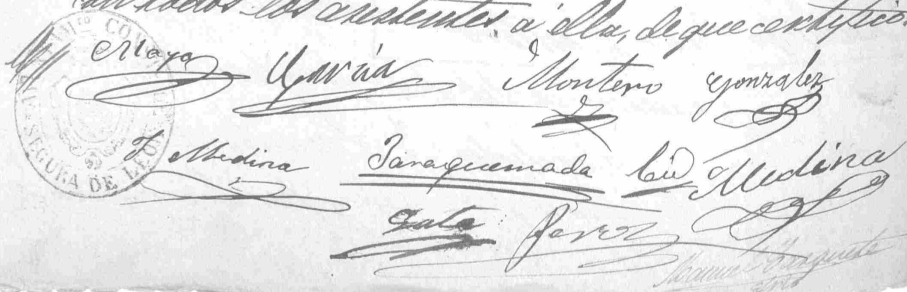 todos los asistentes á ella, de que certifico.
Maya García Montero Gonzalez
F Medina Paraquemada Cid Medina
Gata Perez
SEGURA DE LEON